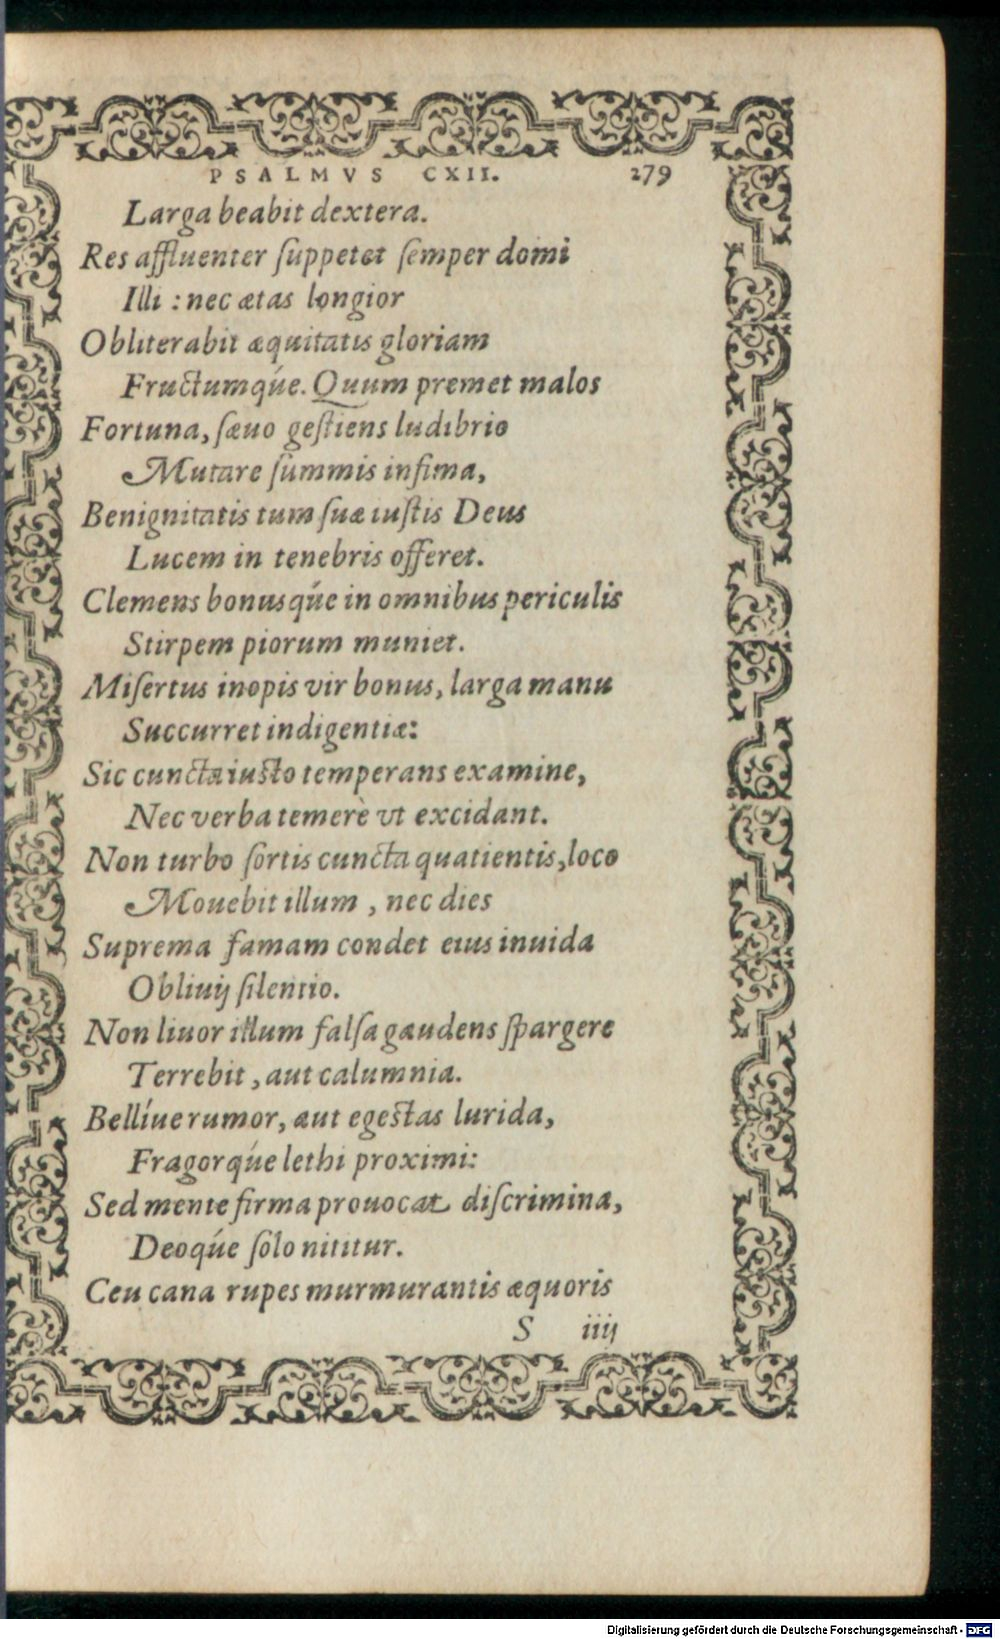 PSALMVS CXII. 279
Larga beabit dextera.
Res affluenter ſuppetet ſemper domi
Illi : nec ætas longior
Obliterabit æquitatis gloriam
Fructumqúe. Quum premet malos
Fortuna, ſæuo geſtiens ludibrio
Mutare ſummis infima,
Benignitatis tum ſuæ iuſtis Deus
Lucem in tenebris offeret.
Clemens bonusqúe in omnibus periculis
Stirpem piorum muniet.
Miſertus inopis vir bonus, larga manu
Succurret indigentiæ:
Sic cuncta iusto temperans examine,
Nec verba temerè vt excidant.
Non turbo ſortis cuncta quatientis, loco
Mouebit illum , nec dies
Suprema famam condet eius inuida
Obliuij ſilentio.
Non liuor illum falſa gaudens ſpargere
Terrebit , aut calumnia.
Bellíue rumor, aut egestas lurida,
Fragorqúe lethi proximi:
Sed mente firma prouocat diſcrimina,
Deoqúe ſolo nititur.
Ceu cana rupes murmurantis æquoris
S iiij
Digitalisierung gefördert durch die Deutsche Forschungsgemeinschaft - DFG